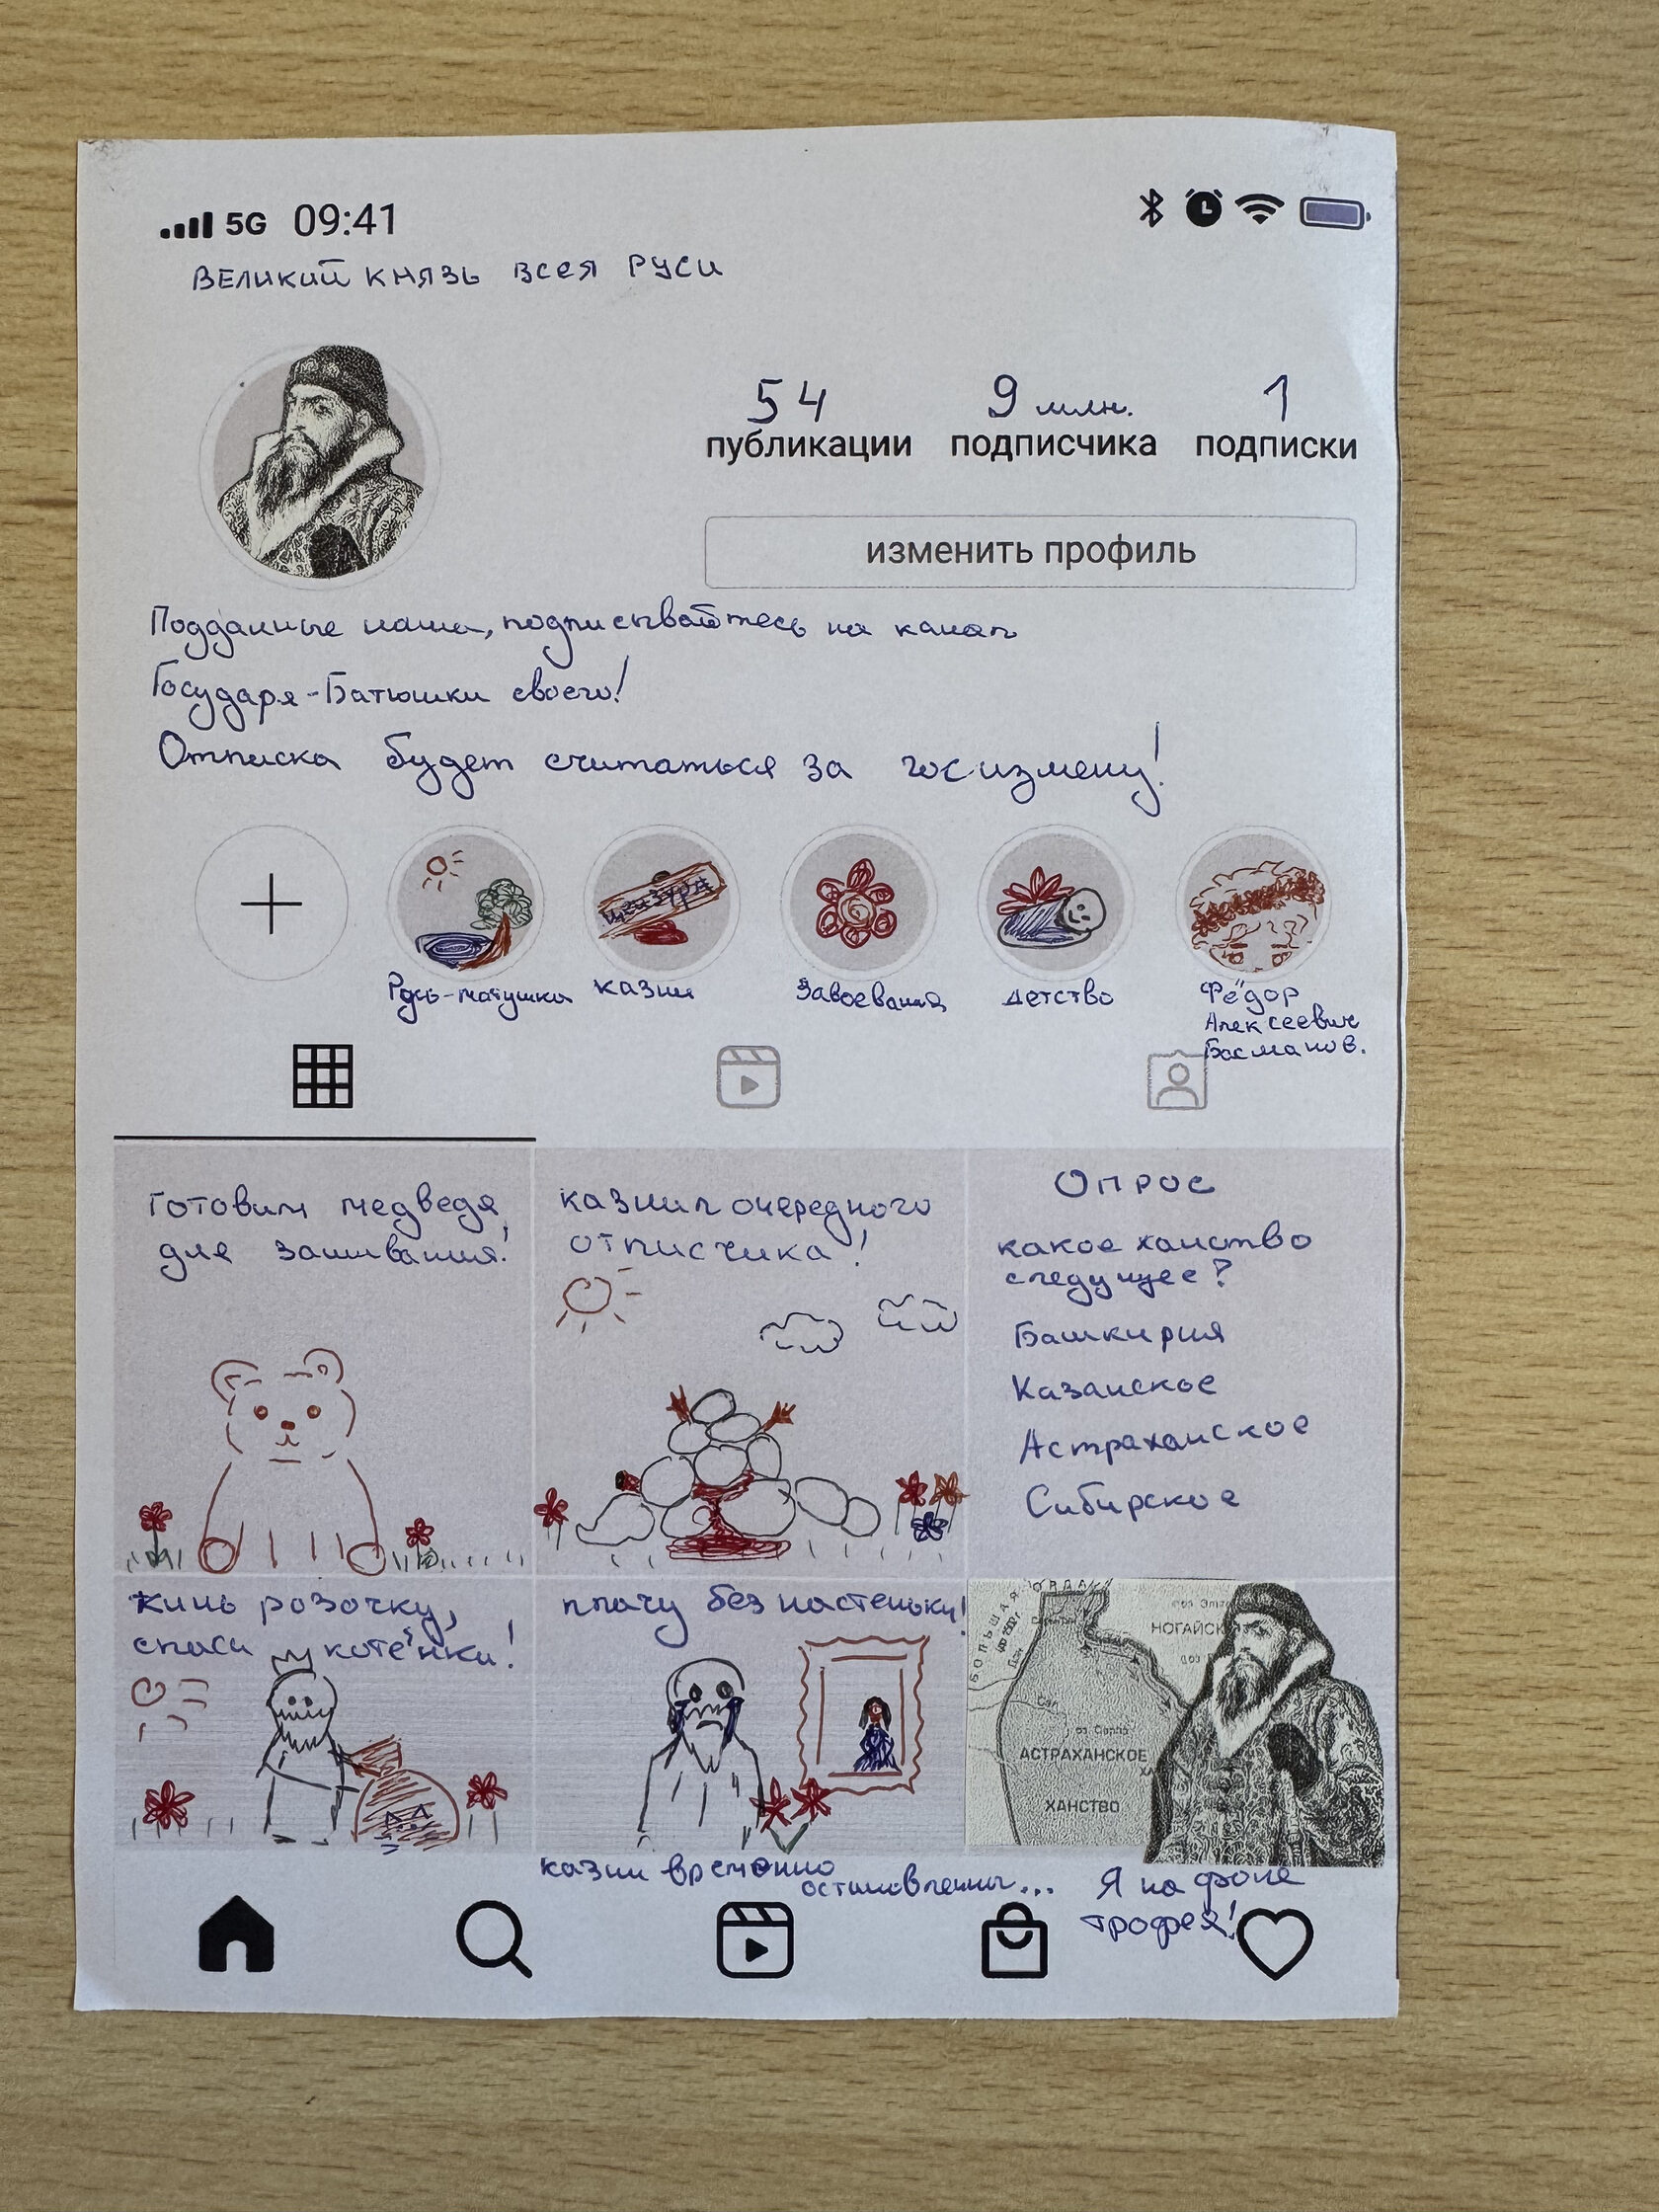 5G 09:41
ВЕЛИКИЙ КНЯЗЬ ВСЕЯ РУСИ
54 9 млн. 1
публикации подписчика подписки
изменить профиль
Подданные наши, подписывайтесь на канал
Государя-Батюшки своего!
Отписка будет считаться за госизмену!
цензура
Русь-матушка казни Завоевания детство Фёдор
Алексеевич
Басманов.
Готовим медведя
для зашивания!
казнил очередного
отписчика!
Опрос
какое ханство
следующее?
Башкирия
Казанское
Астраханское
Сибирское
кинь розочку,
спаси котёнка!
плачу без настеньки!
казни временно
остановленны...
БОЛЬШАЯ ОРДА
НОГАЙСК
оз Сарпа
АСТРАХАНСКОЕ
ХАНСТВО
Я на фоне
трофея!